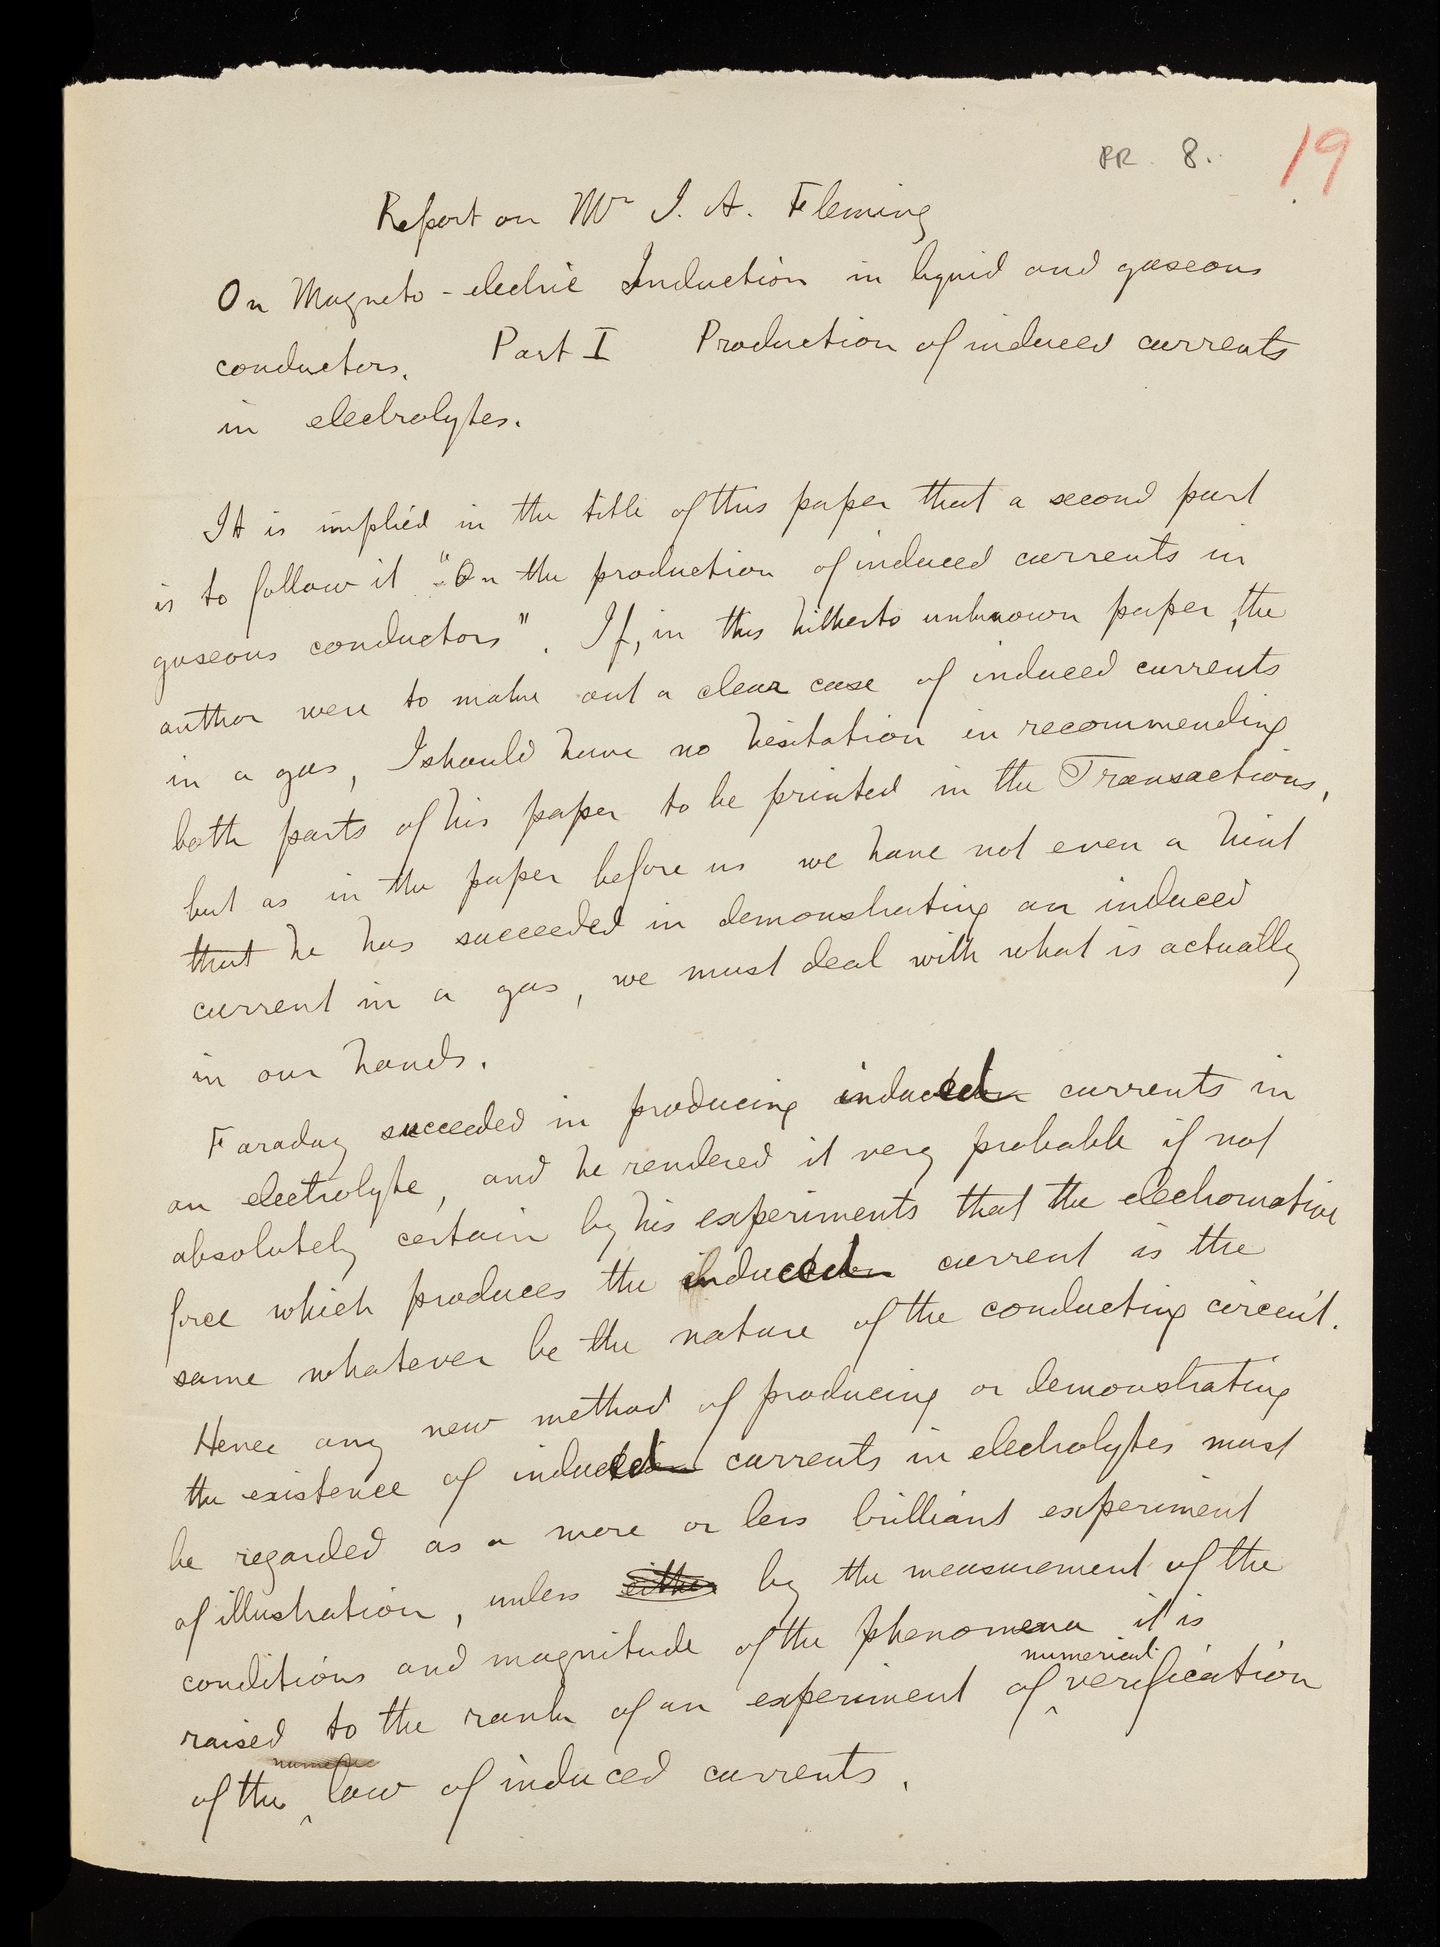 RR. 8.
19
Report on Mr J. A. Fleming
On Magneto-electric Induction in liquid and gaseous
conductors. Part I Production of induced currents
in electrolytes.
It is implied in the title of this paper that a second part
is to follow it "On the production of induced currents in
gaseous conductors". If, in this hitherto unknown paper, the
author were to make out a clear case of induced currents
in a gas, I should have no hesitation in recommending
both parts of his paper to be printed in the Transactions,
but as in the paper before us we have not even a hint
that he has succeeded in demonstrating an induced
current in a gas, we must deal with what is actually
in our hands.
Faraday succeeded in producing induced currents in
an electrolyte, and he rendered it very probable if not
absolutely certain by his experiments that the electromotive
force which produces the induced current is the
same whatever be the nature of the conducting circuit.
Hence any new method of producing or demonstrating
the existence of induced currents in electrolytes must
be regarded as a more or less brilliant experiment
of illustration, unless either by the measurement of the
conditions and magnitude of the phenomena it is
numerical
raised to the rank of an experiment of verification
numeric
of the law of induced currents.